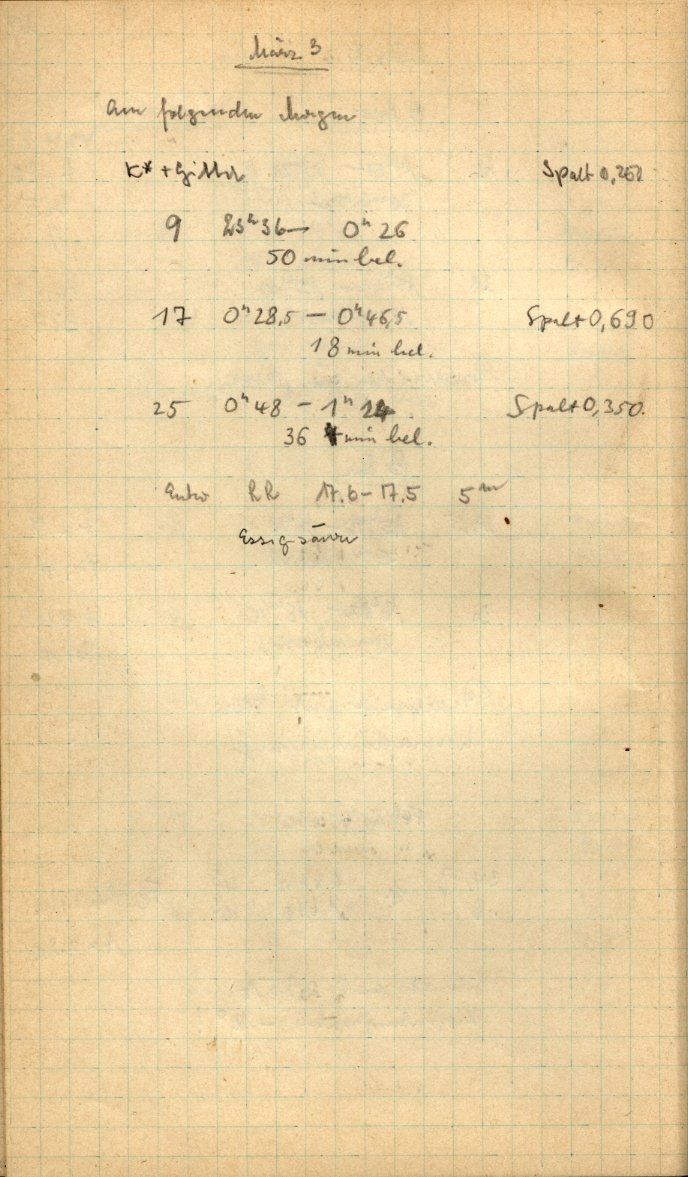 März 3
Am folgenden Morgen
K* + Gitter Spalt 0,260
9 23ʰ36 — 0ʰ 26
50 min bel.
17 0ʰ28,5 — 0ʰ46,5
18 min bel. Spalt 0,690
25 0ʰ48 — 1ʰ 24 Spalt 0,350.
36 min bel.
Entw RR 17.6 – 17.5 5ᵐ
Essigsäure